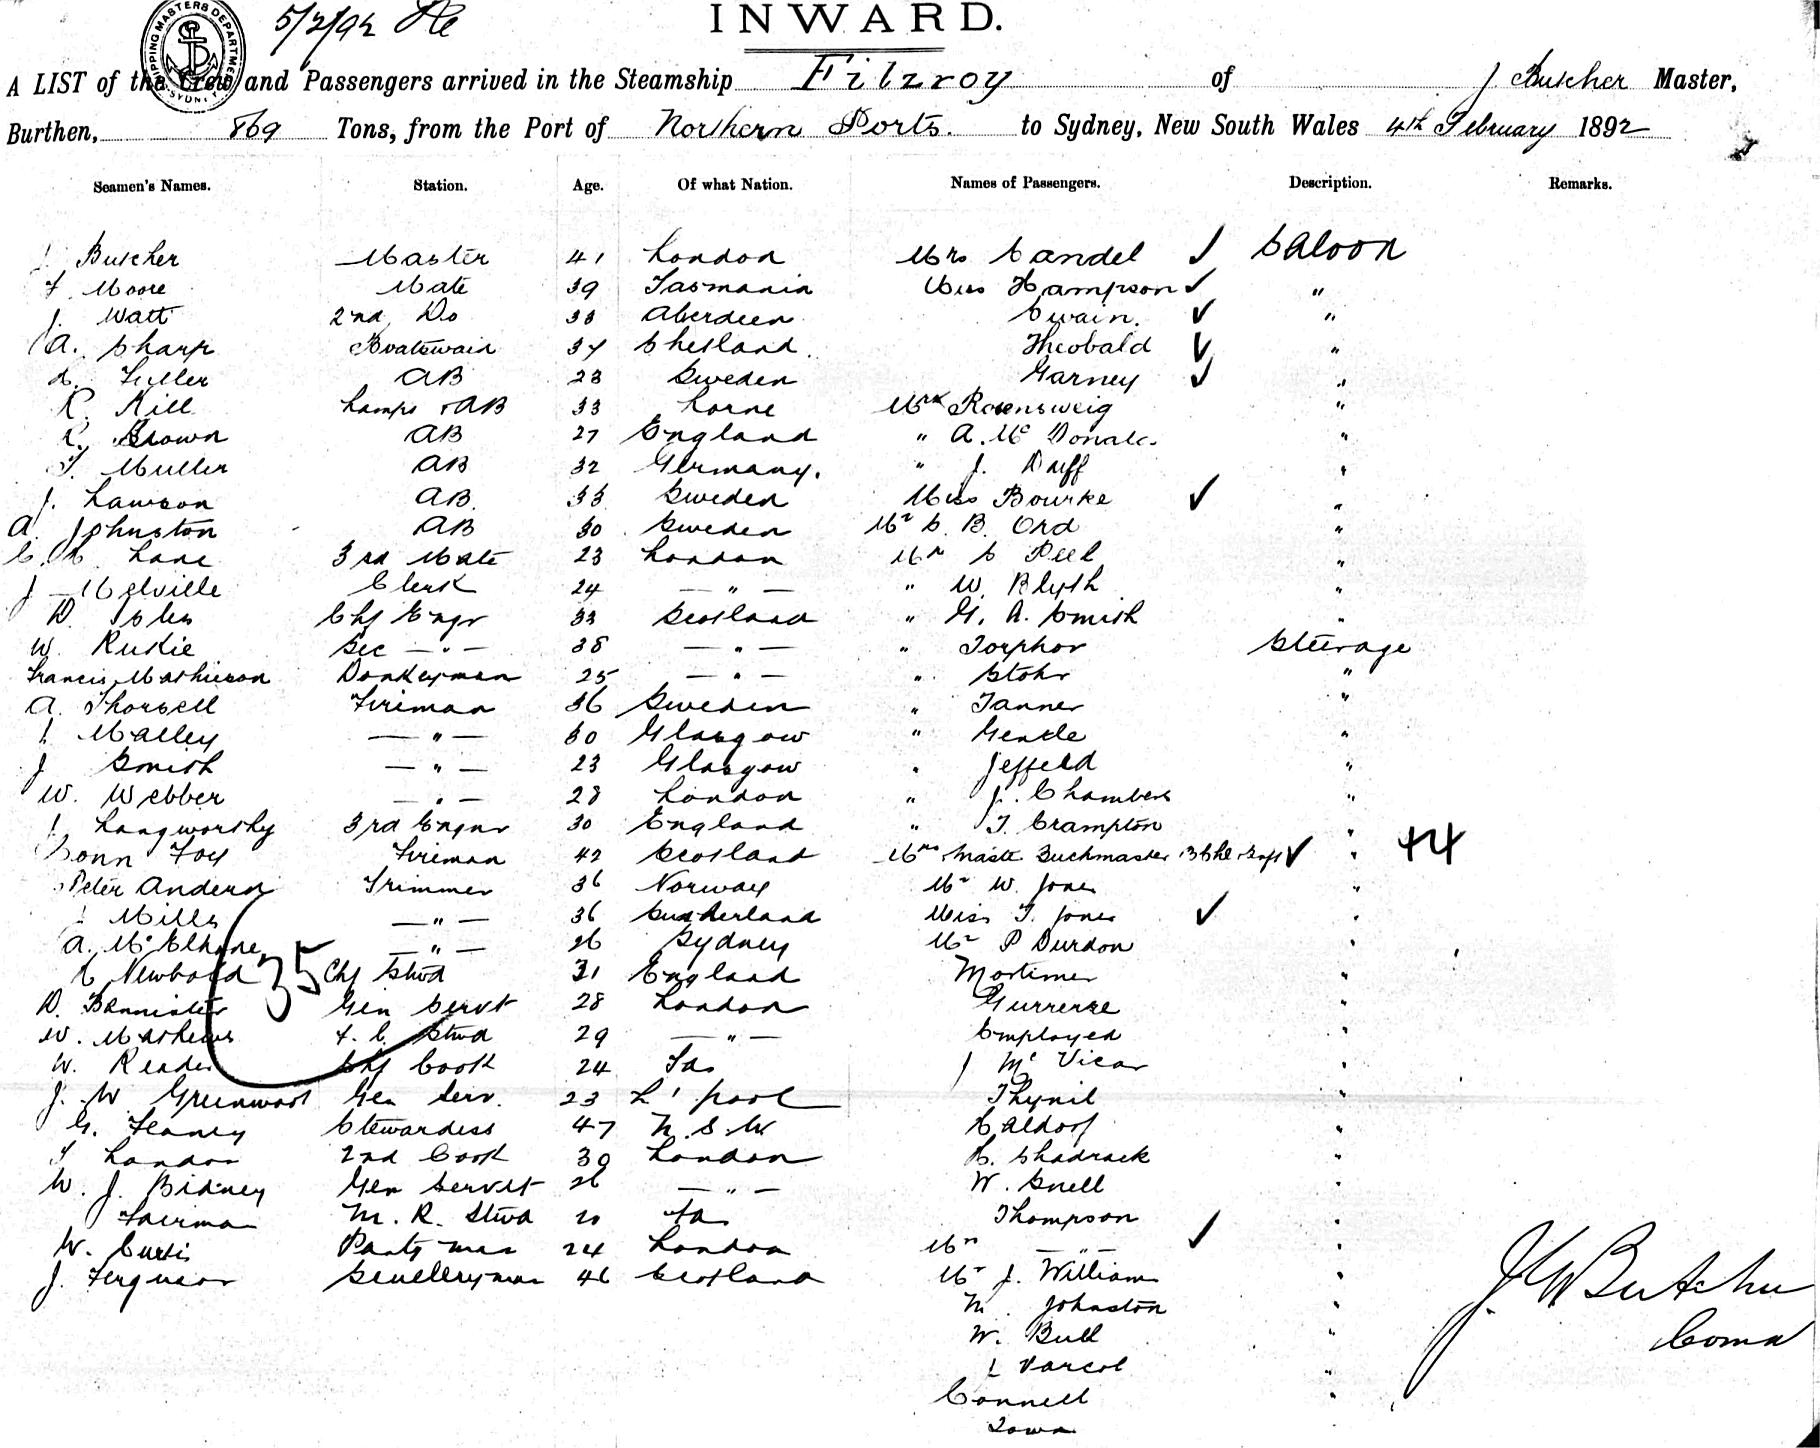 5/2/92
INWARD.
SHIPPING MASTERS DEPARTMENT SYDNEY
A LIST of the Crew and Passengers arrived in the Steamship Fitzroy of J Butcher Master,
Burthen, 869 Tons, from the Port of Northern Ports. to Sydney, New South Wales 4th February 1892
Seamen's Names. Station. Age. Of what Nation. Names of Passengers. Description. Remarks.
Butcher Master 41 London Mrs Candel ✓ Saloon
Moore Mate 39 Tasmania Miss Hampson ✓ "
J. Watt 2nd Do 33 Aberdeen Swain. ✓ "
A. Sharp Boatswain 34 Shetland Theobald ✓ "
Fuller AB 23 Sweden Garney ✓ "
R. Kill Lamps & AB 33 Lorne Mr Rosensweig "
R. Brown AB 27 England " A. Mc Donald "
Muller AB 32 Germany. " J. Duff "
J. Lawson AB 33 Sweden Miss Bourke ✓ "
A. Johnston AB 30 Sweden Mr C. B. Ord "
Lane 3rd Mate 23 London Mr S Peel "
J Melville Clerk 24 — " — " W. Blyth "
D. Isles Chf Engr 33 Scotland " G. A. Smith "
W. Ruskie Sec — " — 38 — " — " Torphor Steerage
Francis Mathieson Donkeyman 25 — " — " Stohr "
A. Thorsell Fireman 36 Sweden " Tanner "
Malley — " — 30 Glasgow " Gentle "
J Smith — " — 23 Glasgow " Jeffeld "
W. Webber — " — 28 London " J. Chambers "
J. Langworthy 3rd Engnr 30 England " T. Crampton "
Foy Fireman 42 Scotland Mrs Maste Buckmaster ✓ " 44
Peter Anderson Trimmer 36 Norway Mr W. Jones "
Mills — " — 36 Sunderland Miss T. Jones ✓ "
A. McElhone — " — 26 Sydney Mr P Durdon "
Newbold 35 Chf Stwd 31 England Mortimer "
D. Bannister Gen Servt 28 London Gurrerse "
W. Mathews F. C. Stwd 29 — " — Employed "
W. Reader Chf Cook 24 Do J McVicar "
J. W Greenwood Gen Serv. 23 L'pool Thynil "
G. Feaney Stewardess 47 N.S.W Caldorf "
London 2nd Cook 30 London H. Shadrack "
W. J. Bidney Gen Servt 26 — " — W. Snell "
Fairman M. R. Stwd 20 Do Thompson "
W. Curtis Pantryman 24 London Mrs — " — ✓ "
J. Ferguson Sculleryman 46 Scotland Mr J. William "
M. Johnston "
W. Bull "
L Varcol "
Connell "
Iowa
J W Butcher
Comd